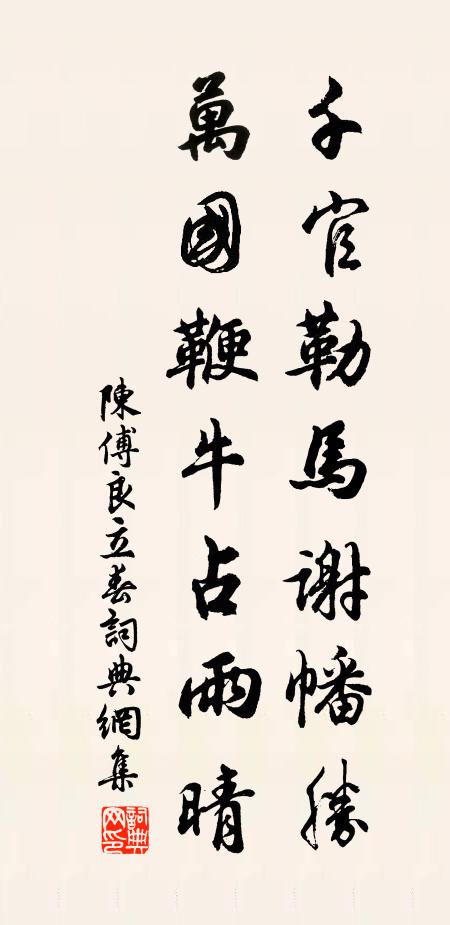 千官勒馬謝幡勝
萬國鞭牛占雨晴
陳傅良立春詞典網集
詞典網印